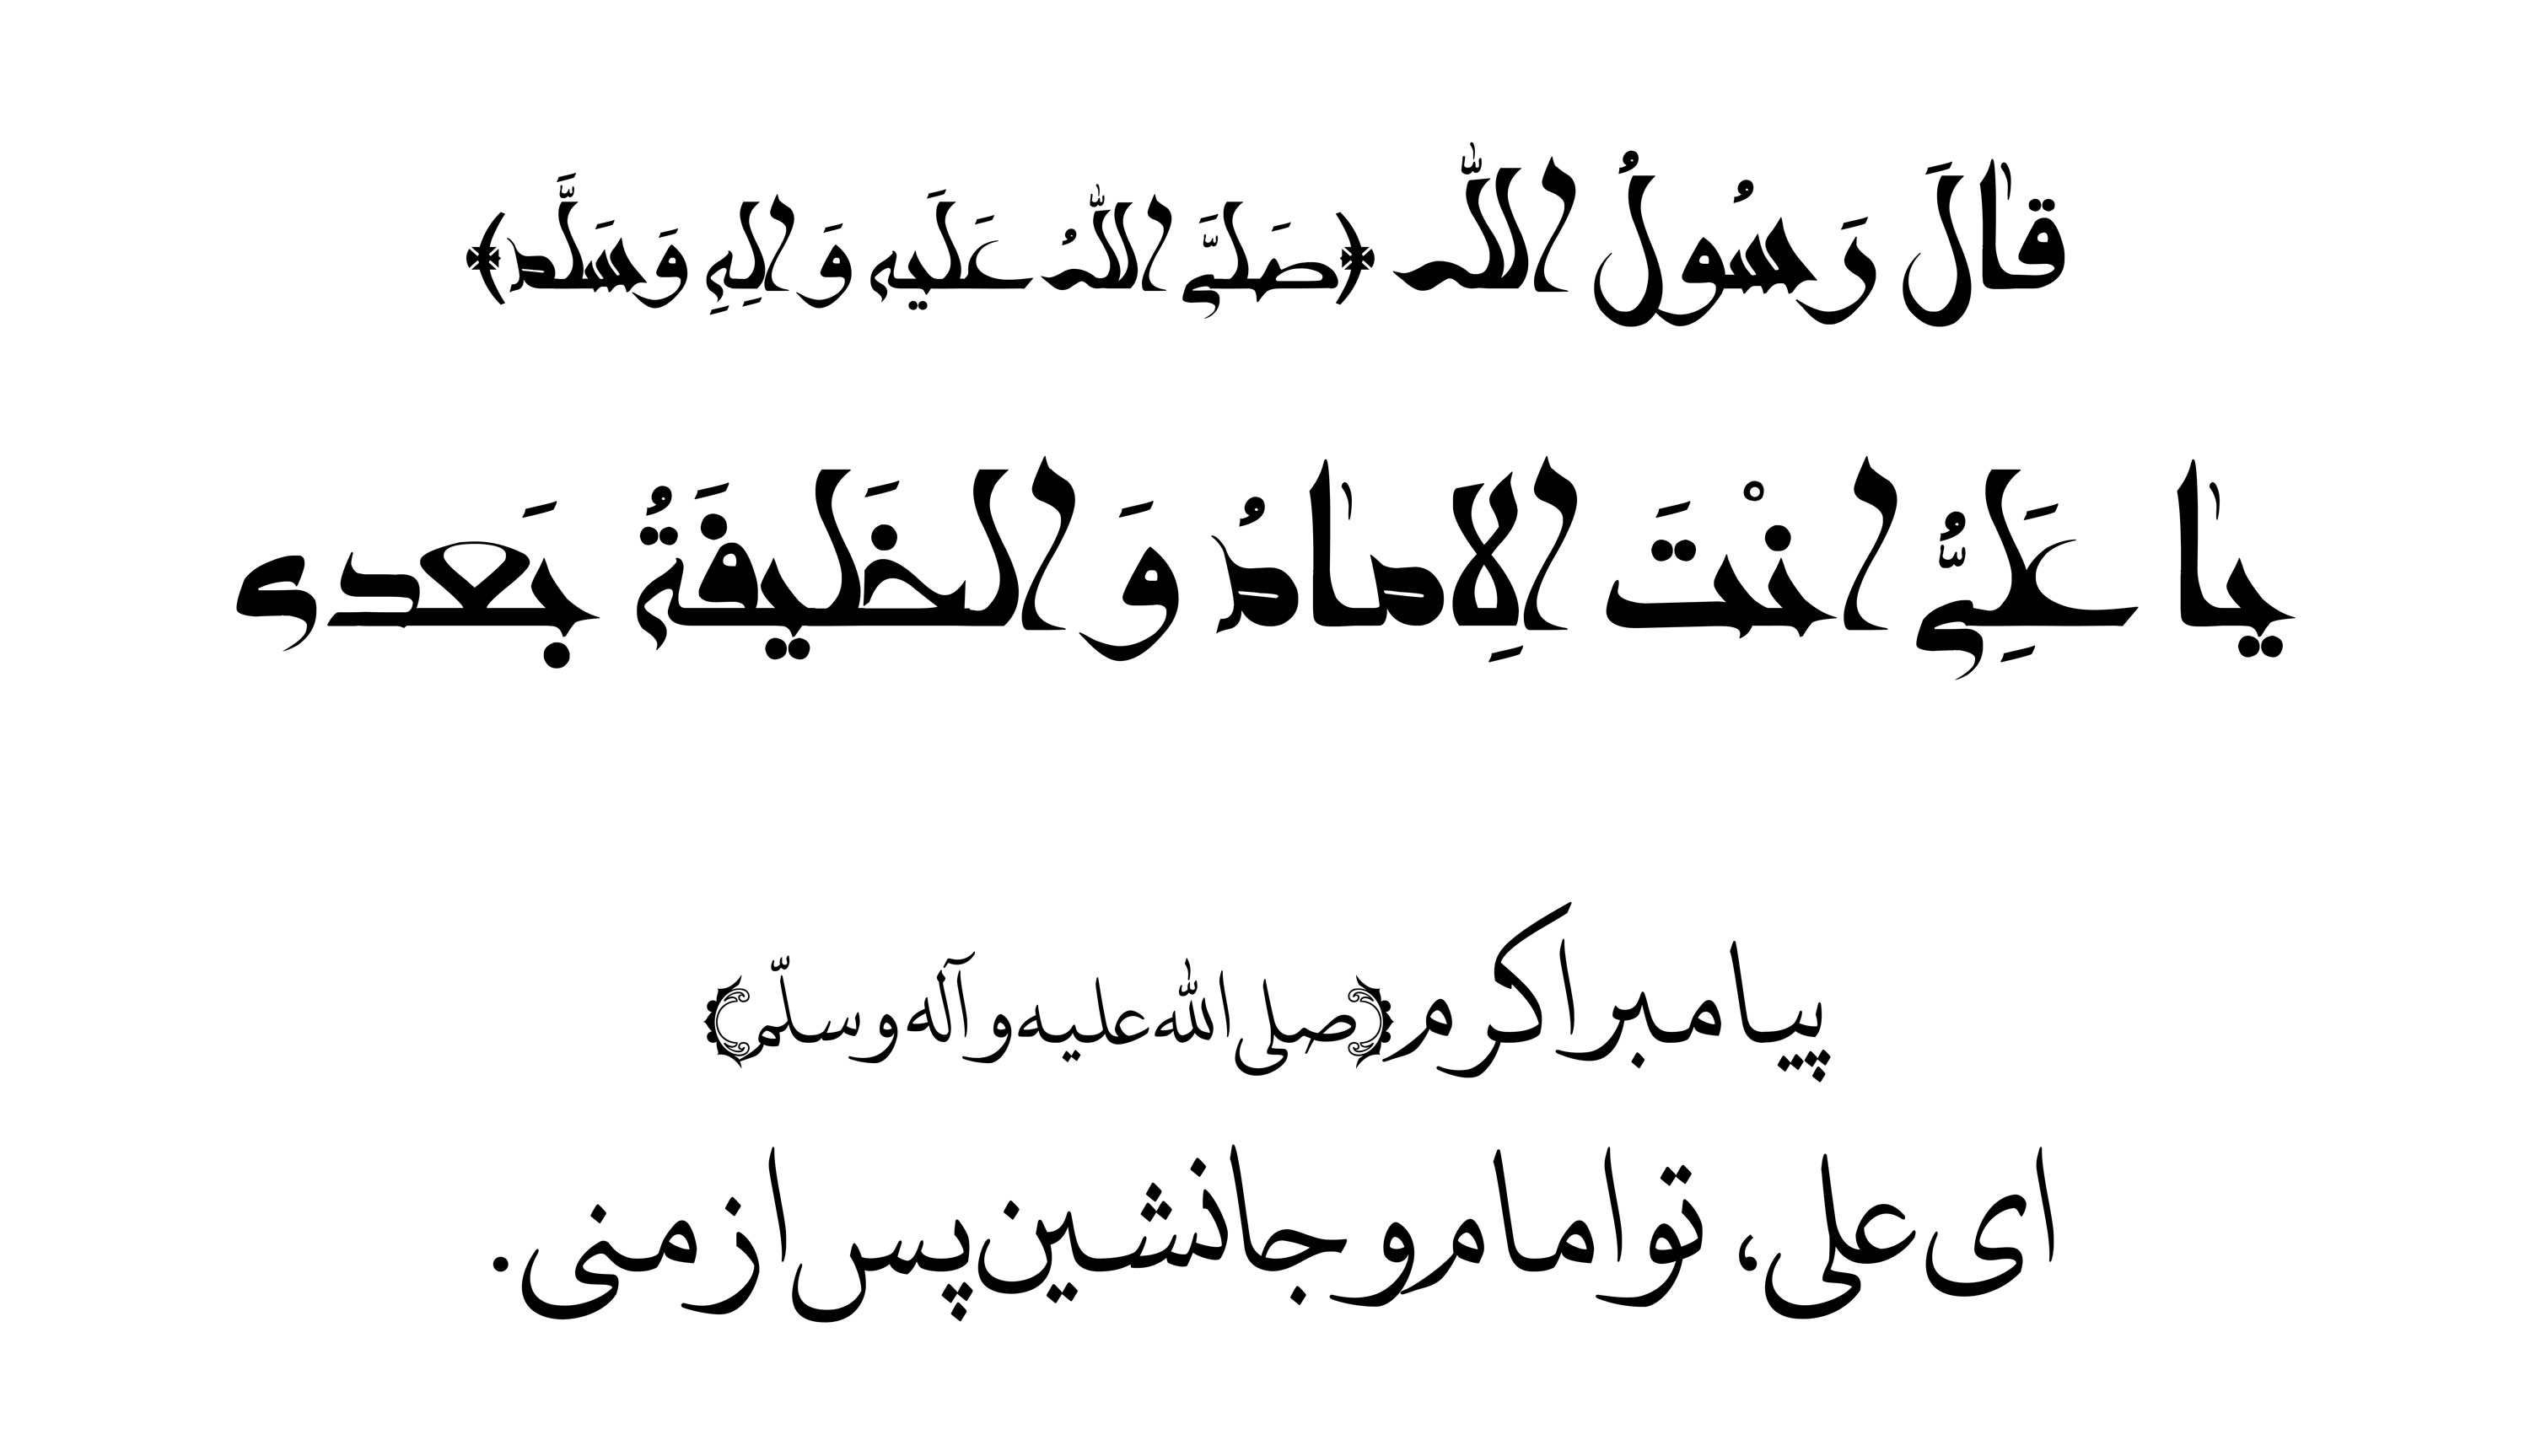 قٰالَ رَسُولُ اللّٰه ﴿صَلَّیَ اللّٰهُ عَلَیه وَ الِهِ وَسَلَّم﴾
یٰا عَلِیُّ انْتَ الاِمٰامُ وَ الخَلیفَةُ بَعدی
پیامبر اکرم ﴿صلی اللّٰه علیه و آله و سلّم﴾
ای علی، تو امام و جانشین پس از منی.